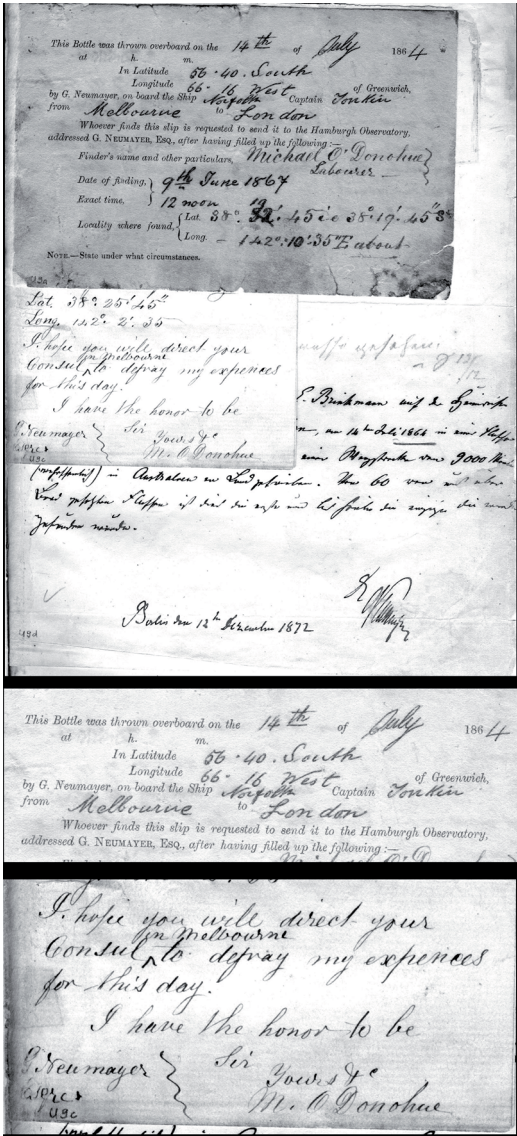 This Bottle was thrown overboard on the 14th of July 1864
at h. m.
In Latitude 56·40. South
Longitude 66·16 West of Greenwich,
by G. Neumayer, on board the Ship Norfolk Captain Tonkin
from Melbourne to London
Whoever finds this slip is requested to send it to the Hamburgh Observatory,
addressed G. NEUMAYER, ESQ., after having filled up the following:—
Finder's name and other particulars, Michael O'Donohue
Labourer
Date of finding, 9th June 1867
Exact time, 12 noon
Locality where found, Lat. 38° 45 i e 38°·19'. 45" S
Long. 142°·10'·35" E about
NOTE.—State under what circumstances.
49a
Lat. 38° 25' 45"
Long. 142° 2'. 35
I hope you will direct your
in Melbourne
Consul to defray my expences
for this day.
I have the honor to be
Sir
G Neumayer Yours &c
M. O Donohue
49c
Brinkmann auf der
am 14ten Juli 1864 in eine
von 9000
in Australien an Land getrieben. Von 60 von
Flaschen ist dies die erste und bis die einzige die
gefunden wurde.
Berlin den 12ten Dezember 1872
49d
This Bottle was thrown overboard on the 14th of July 1864
at h. m.
In Latitude 56·40. South
Longitude 66·16 West of Greenwich,
by G. Neumayer, on board the Ship Norfolk Captain Tonkin
from Melbourne to London
Whoever finds this slip is requested to send it to the Hamburgh Observatory,
addressed G. NEUMAYER, ESQ., after having filled up the following:—
I hope you will direct your
in Melbourne
Consul to defray my expences
for this day.
I have the honor to be
Sir
G Neumayer Yours &c
M. O Donohue
49c